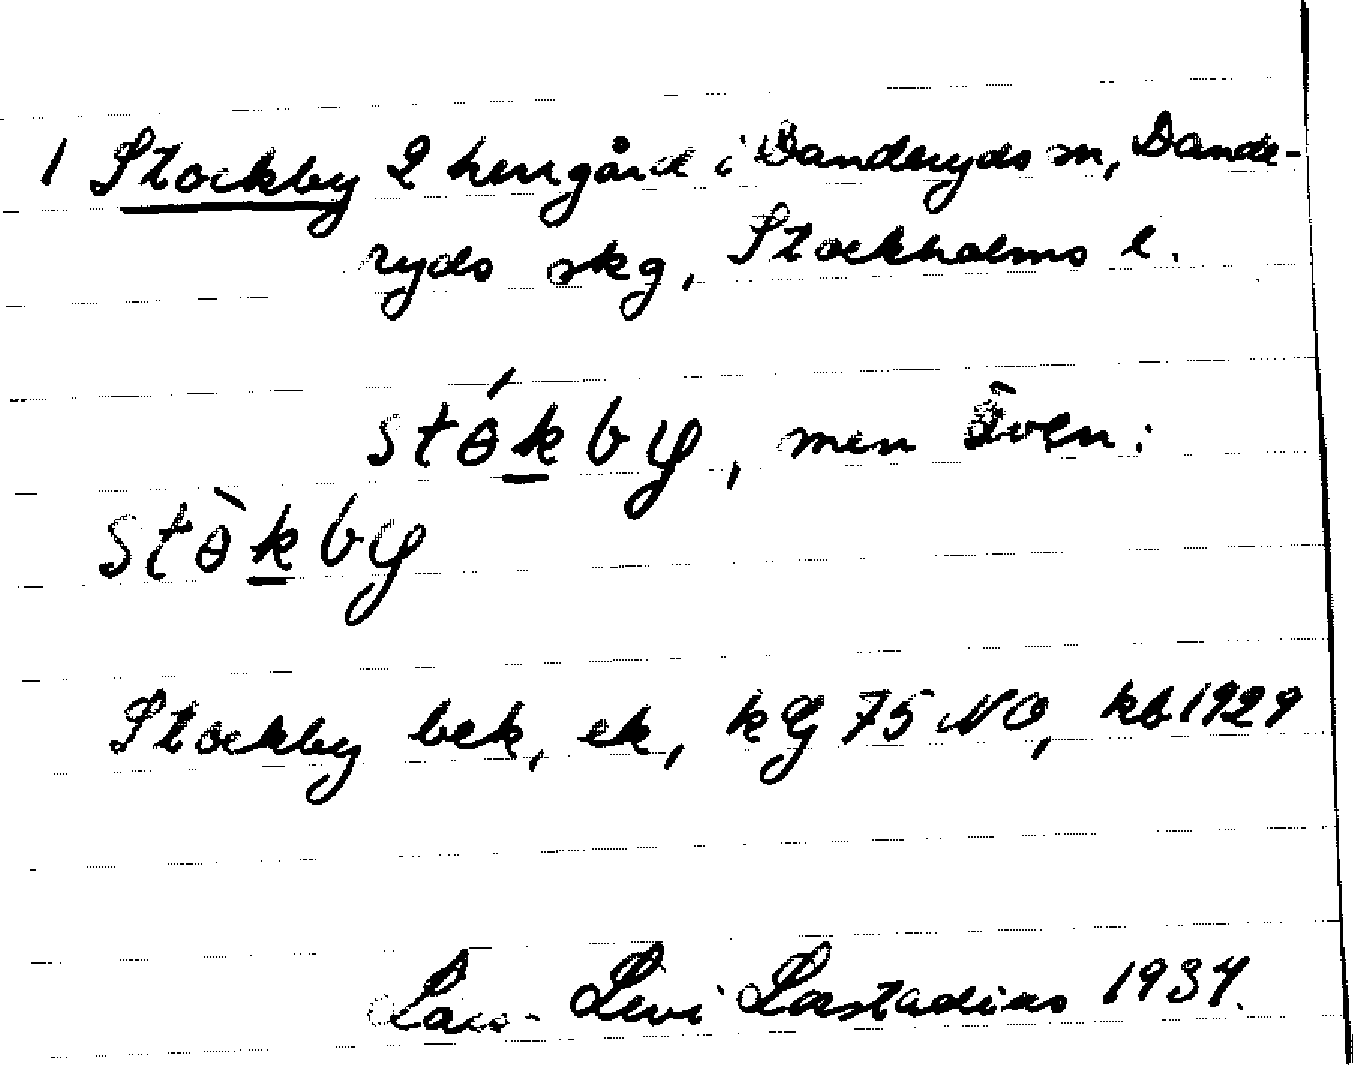 1 Stockby 2 herrgård i Danderyds sn, Dande-
ryds skg, Stockholms l.
stɵ́k̲by, men även:
stɵ̀k̲by
Stockby bek, ek, kg 75 NO, kb 1929
Lars-Levi Læstadius 1934.